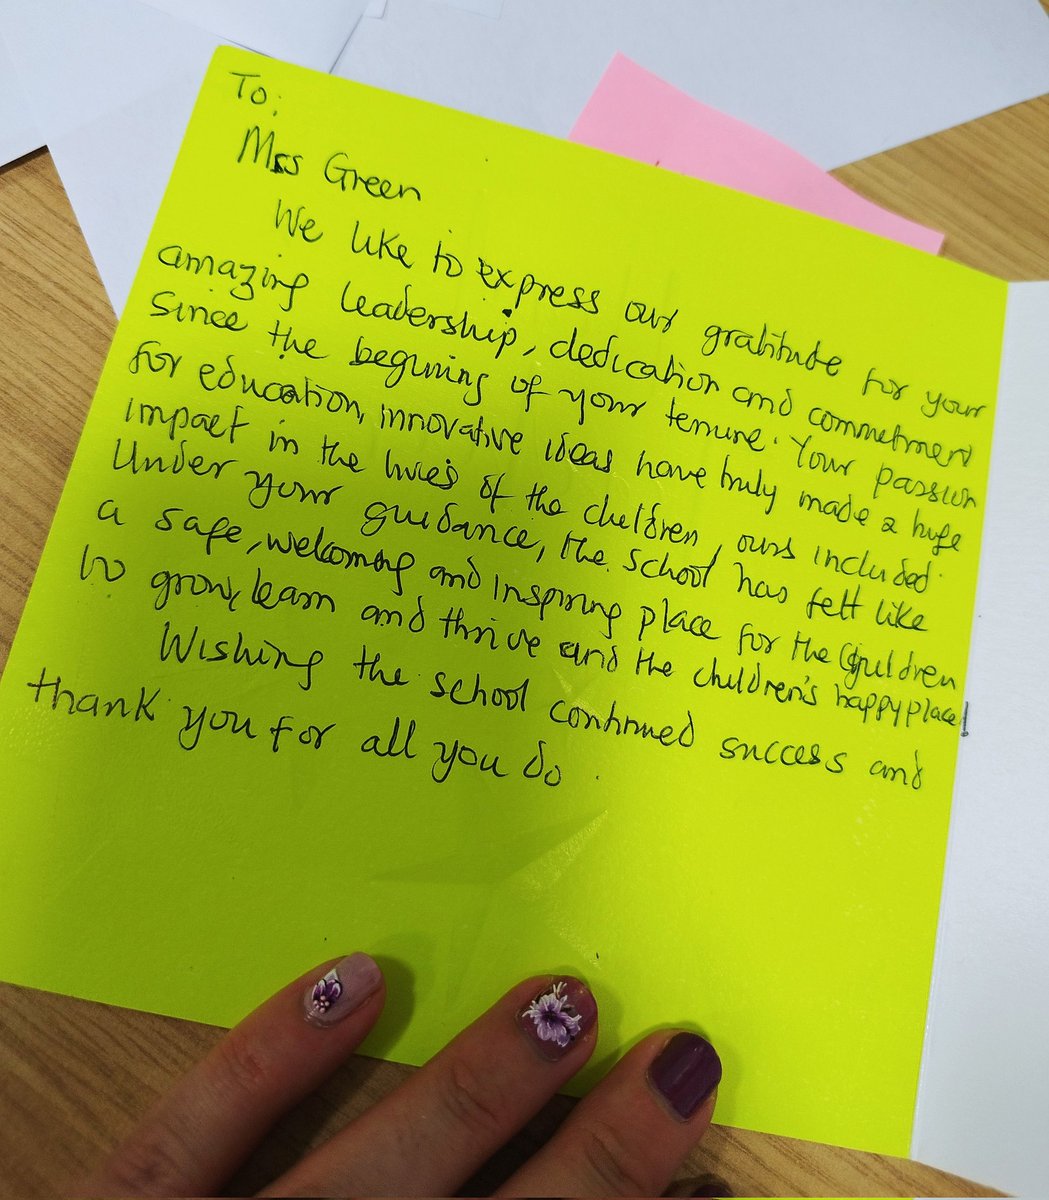 To:
Miss Green
We like to express our gratitude for your
amazing leadership, dedication and commitment
since the begining of your tenure. Your passion
for education, innovative ideas have truly made a huge
impact in the lives of the children, ours included.
Under your guidance, the school has felt like
a safe, welcoming and inspiring place for the children
to grow, learn and thrive and the children's happy place!
Wishing the school continued success and
thank you for all you do.